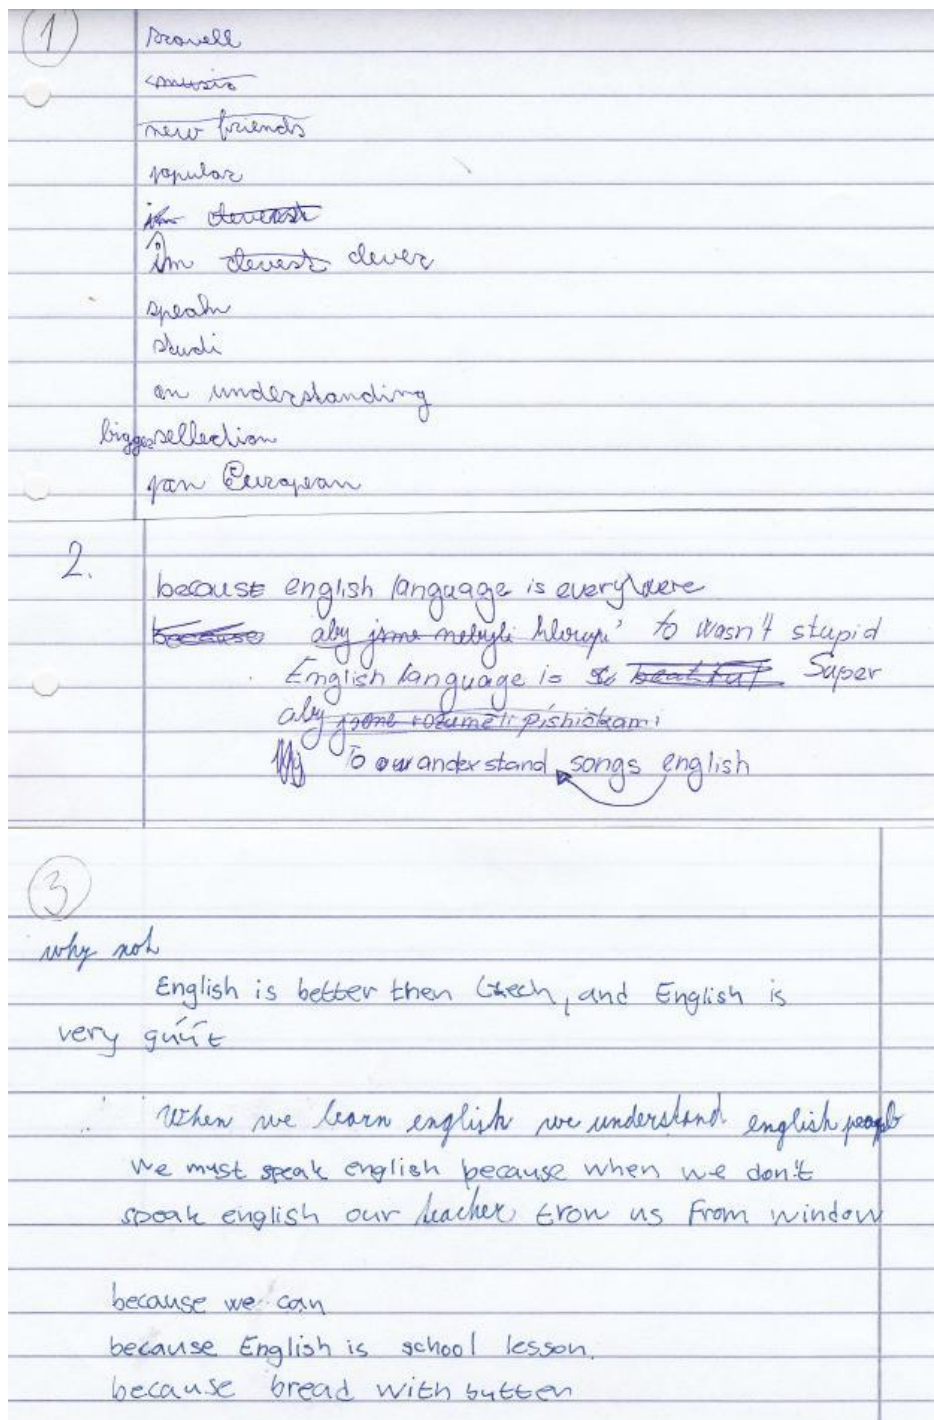 1
travell
music
new friends
popular
im cleverst
im cleverst clever
speak
studi
on understanding
bigger sellection
pan European
2.
because english language is everywere
because aby jsme nebyli hloupí to wasn't stupid
English language is beatiful Super
aby jsme rozuměli písničkami
To our anderstand songs english
3
why not
English is better then Czech, and English is
very gúút
When we learn english we understand english people
We must speak english because when we don't
speak english our teacher trow us from window
because we can
because English is school lesson.
because bread with butten